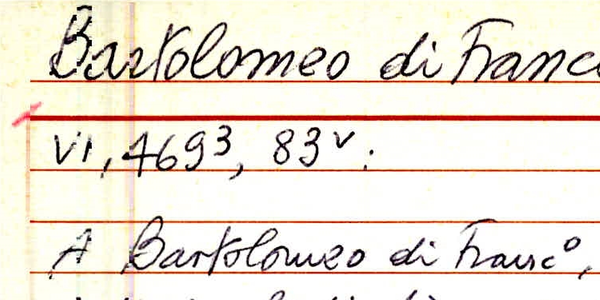 Bartolomeo di Franc
VI, 4693, 83v:
A Bartolomeo di Francº,